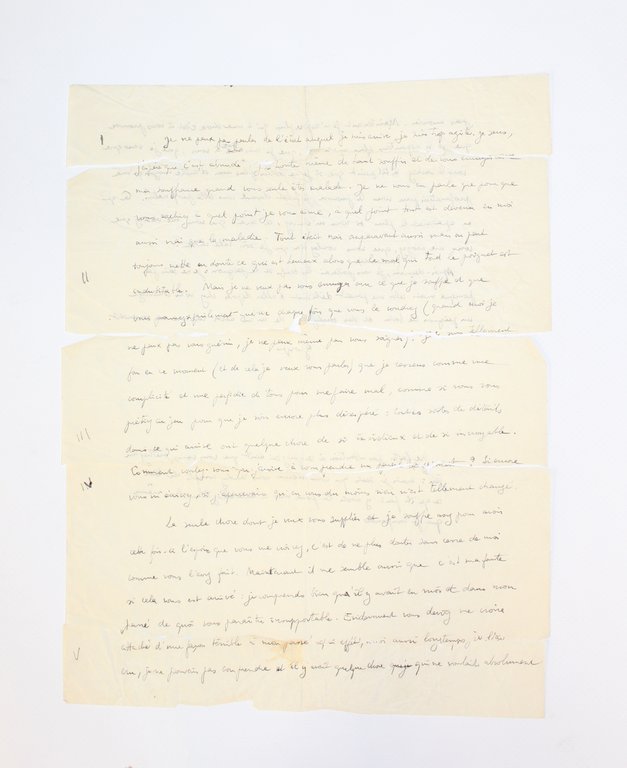 I Je ne peux pas parler de l'état auquel je suis arrivé, je suis trop agité, je sens,
que c'est absurde et honte même de tant souffrir et de vous ennuyer
ma souffrance quand vous seule êtes malade. Je ne vous en parle que pour que
vous sachiez à quel point je vous aime, à quel point tout est devenu en moi
aussi vrai que la maladie. Tout était vrai auparavant aussi mais on peut
toujours mettre en doute ce qui est heureux alors que le mal qui tord ce poignet est
II indubitable. Mais je ne veux pas vous ennuyer avec ce que je souffre et que
vous que chaque fois que vous le voudrez (quand moi je
ne peux pas vous guérir, je ne peux même pas vous soigner). Je suis tellement
fou en ce moment (et de cela je veux vous parler) que je ressens comme une
complicité et une perfidie de tous pour me faire mal, comme si vous vous
prêtiez au jeu pour que je sois encore plus désespéré : toutes sortes de détails
III dans ce qui arrive ont quelque chose de si insidieux et de si incroyable.
Comment voulez-vous que j'arrive à comprendre un pareil ? Si encore
IV vous m'écriviez, si j'apercevais que en vous du moins rien n'est tellement changé.
La seule chose dont je veux vous supplier et je souffre trop pour avoir
cette fois-ci l'espoir que vous me c'est de ne plus douter sans cesse de moi
comme vous l'avez fait. Maintenant il me semble aussi que c'est ma faute
si cela vous est arrivé : je comprends bien qu'il y avait en moi et dans mon
passé de quoi vous paraître insupportable. Évidemment vous devez me croire
attaché d'une façon terrible à mon passé et en effet, moi aussi longtemps je l'ai
V cru, je ne pouvais pas comprendre et il y avait quelque chose qui ne voulait absolument